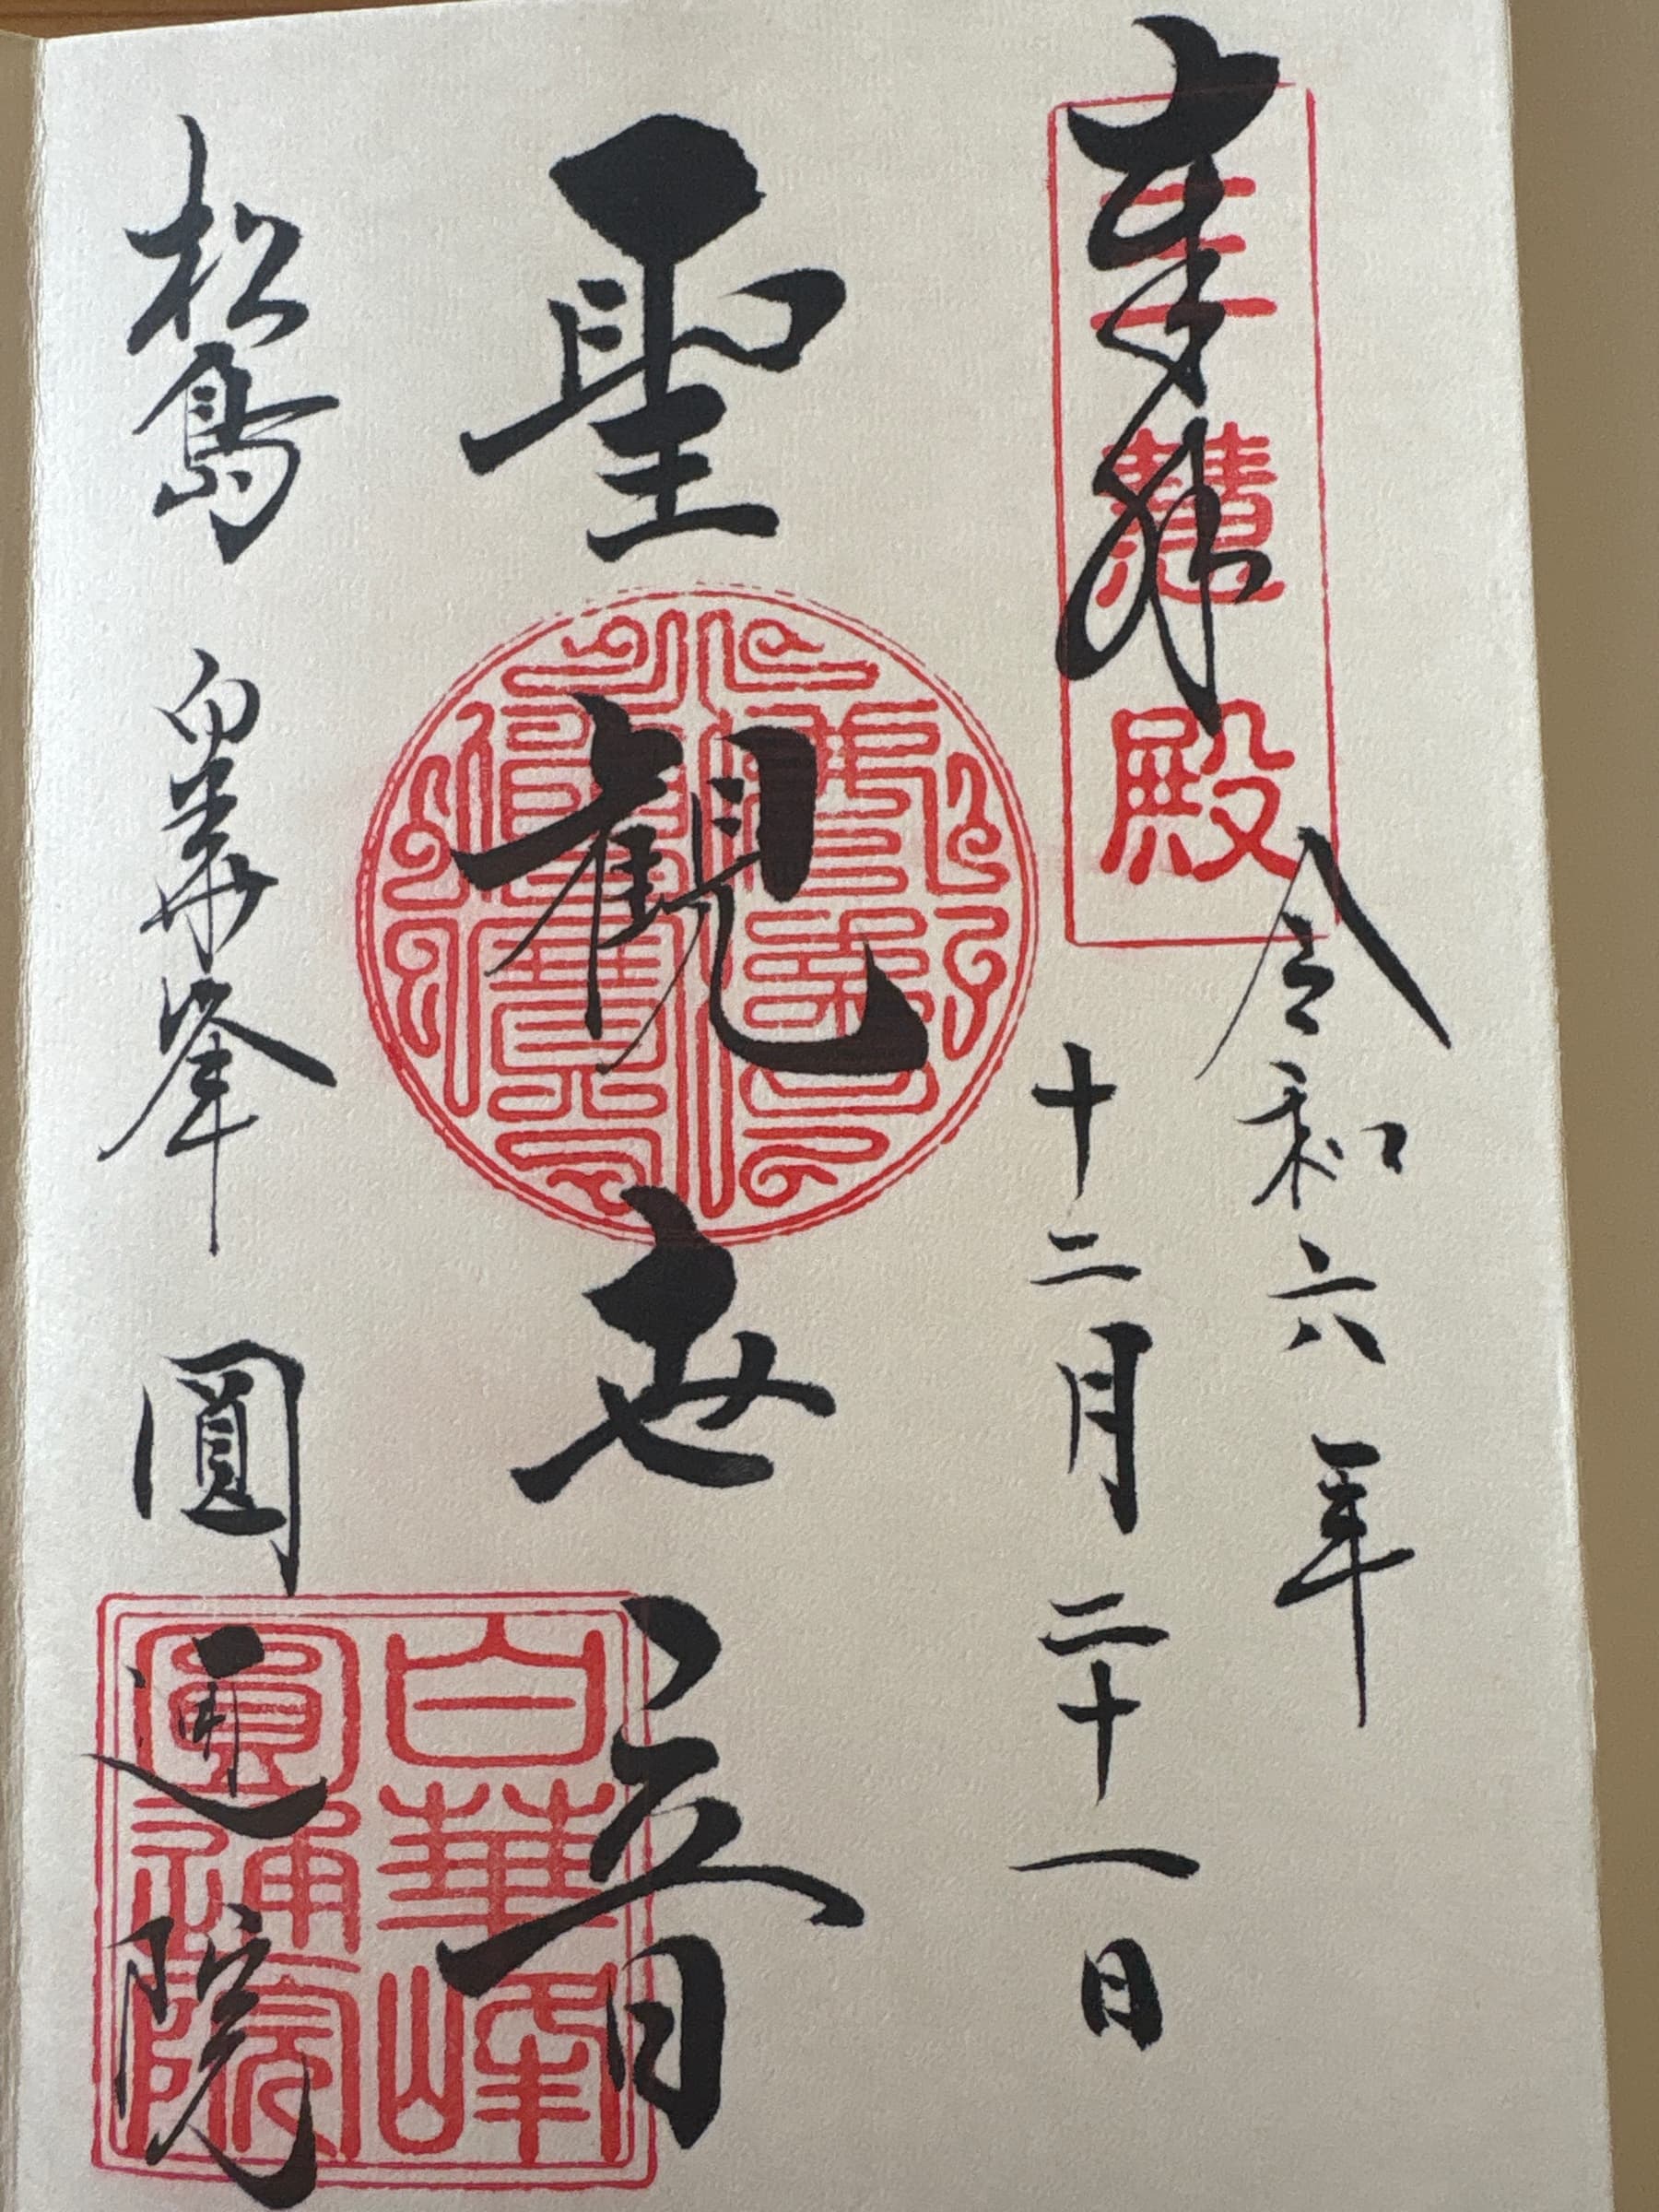 奉拝
三慧殿
令和六年
十二月二十一日
聖観世音
松島 白華峯 圓通院
白華峰
圓通院